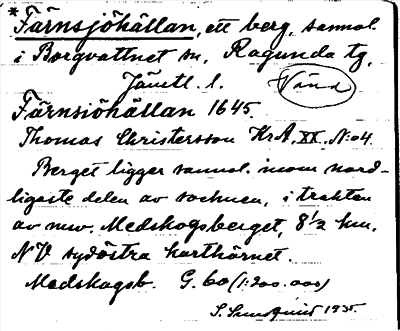 *Färnsjöhällan, ett berg, sannol.
i Borgvattnet sn, Ragunda tg,
Jämtl. l. Vind
Färnsiöhällan 1645.
Thomas Christersson KrA, XX, N:o 4
Berget ligger sannol. inom nord-
ligaste delen av socknen, i trakten
av nuv. Medskogsberget, 8 1/2 km.
NV sydöstra karthörnet.
Medskogsb. G. 60 (1:200.000)
S. 1935.